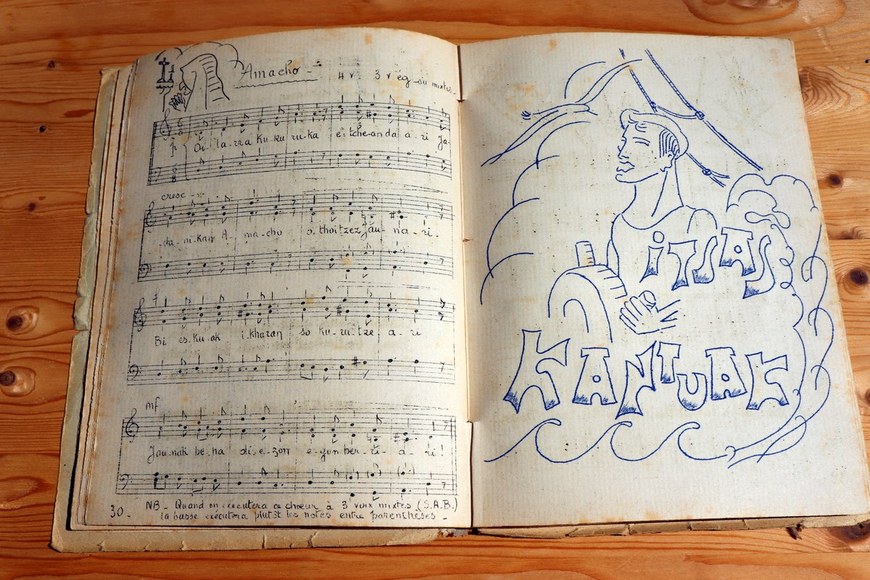 Amacho -
4 v. 3 v ég. ou mixtes
p Oi.la.rra Ku.ku.ru.ka e.tche.an da.a.ri Ja-
cresc
da.ni.kan A.ma.cho o.thoitzez Jau.na.ri.
f
Bi es.ku.ak i.khazan so ku.ru.tze.a.ri
mf
Jau.nak be.ha di.e.zon e.gun ber.ri.a.ri!
30. NB - Quand on exécutera ce chœur à 3 voix mixtes (S.A.B.)
la basse exécutera plutôt les notes entre parenthèses -
iTSAS
KANTUAK